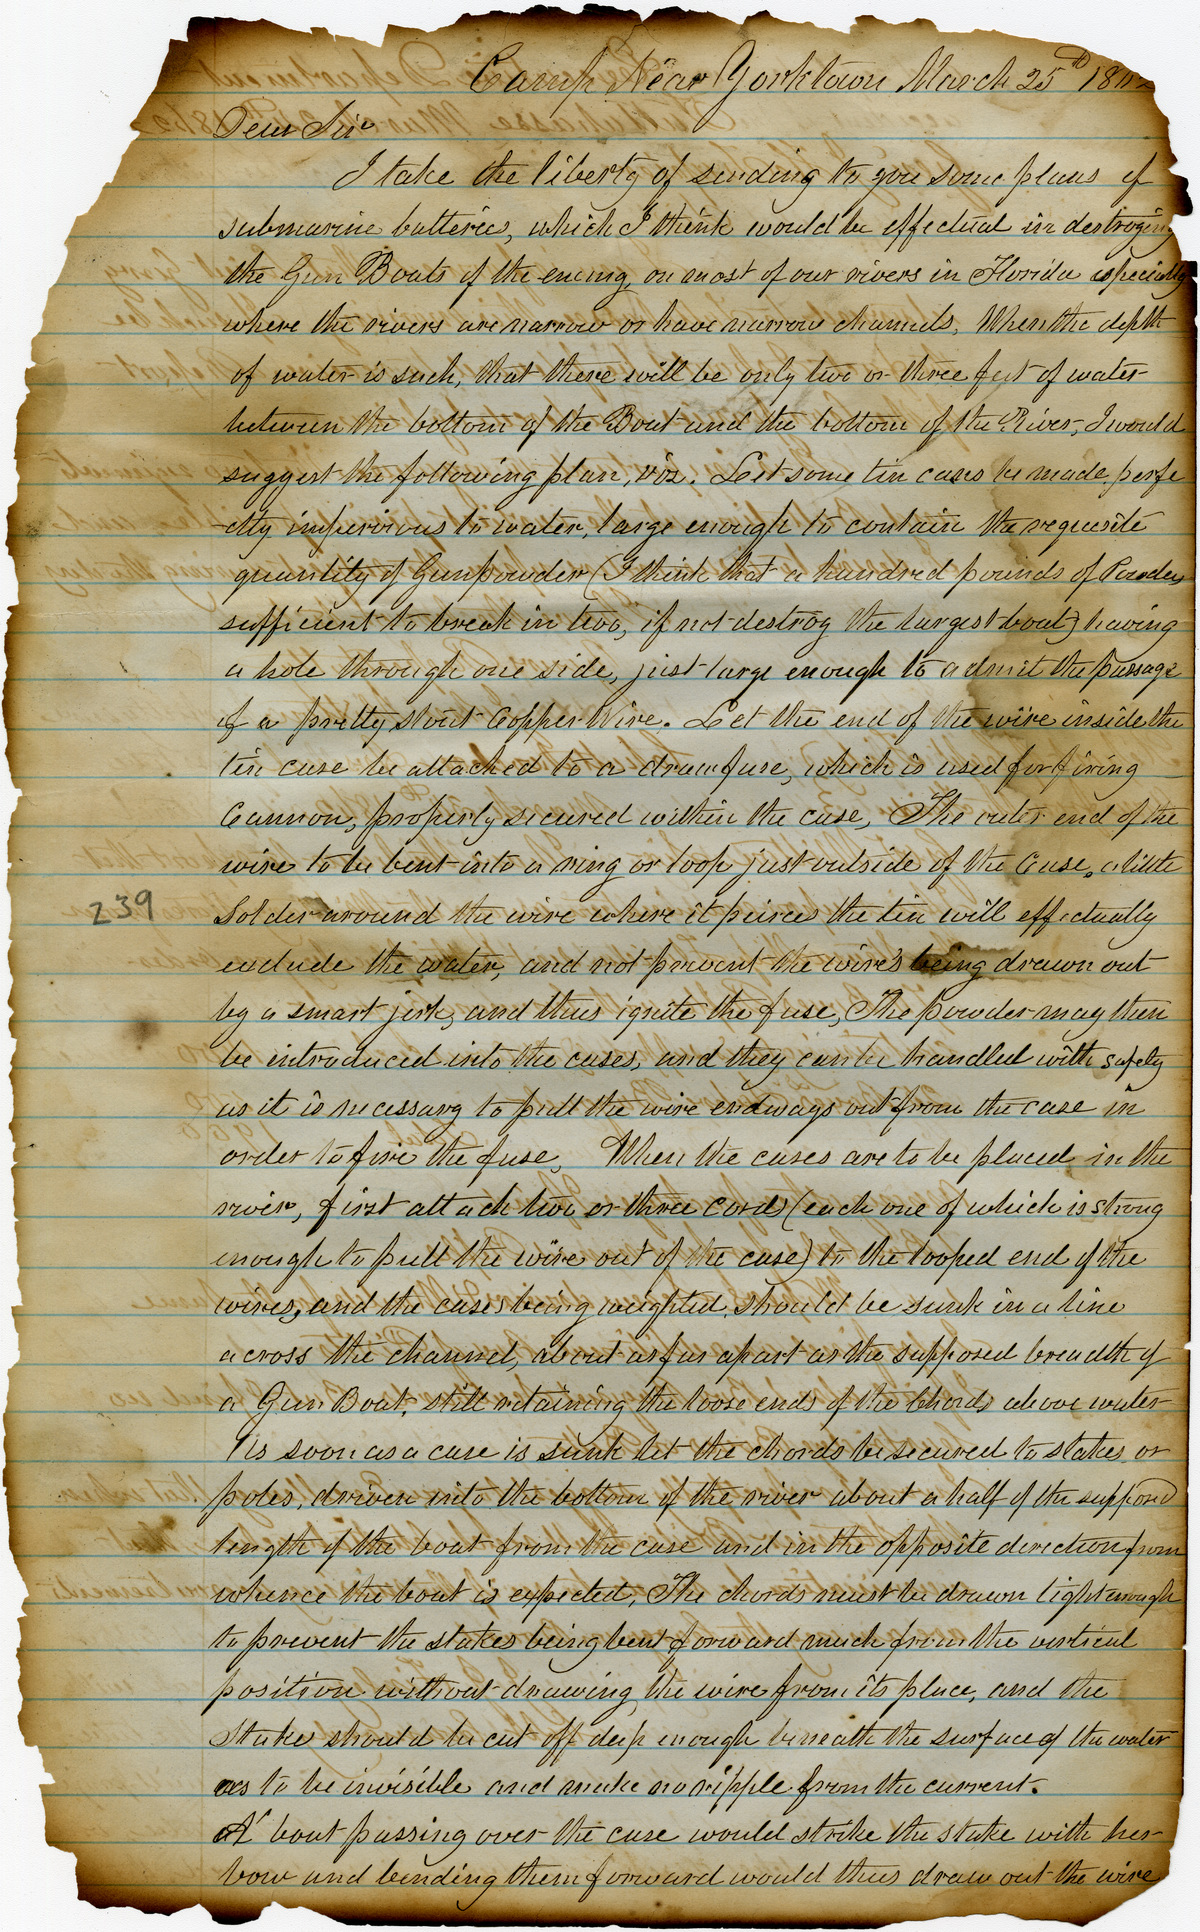 Camp Near Yorktown March 25th 1862
Dear Sir
I take the liberty of sending to you some plans of
submarine batteries, which I think would be effectual in destroying
the Gun Boats of the enemy, on most of our rivers in Florida especially
where the rivers are narrow or have narrow channels. When the depth
of water is such, that there will be only two or three feet of water
between the bottom of the Boat and the bottom of the River, I would
suggest the following plan, viz. Let some tin cases be made, perfe
-ctly impervious to water, large enough to contain the requisite
quantity of Gunpowder (I think that a hundred pounds of Powder,
sufficient to break in two, if not destroy the largest boat) having
a hole through one side, just large enough to admit the passage
of a pretty stout Copper Wire. Let the end of the wire inside the
tin case be attached to a draw fuse, which is used for firing
Cannon, properly secured within the case, The outer end of the
wire to be bent into a ring or loop just outside of the Case, a little
239
Solder around the wire where it peirces the tin will effectually
exclude the water, and not prevent the wire's being drawn out
by a smart jerk, and thus ignite the fuse, The Powder may then
be introduced into the cases, and they can be handled with safety
as it is necessary to pull the wire endways out from the case in
order to fire the fuse, When the cases are to be placed in the
river, first attach two or three cords (each one of which is strong
enough to pull the wire out of the case) to the looped end of the
wires, and the cases being weighted, should be sunk in a line
across the channel, about as far apart as the supposed breadth of
a Gun Boat, still retaining the loose ends of the Chords above water
As soon as a case is sunk let the chords be secured to stakes or
poles, driven into the bottom of the river about a half of the supposed
length of the boat from the case and in the opposite direction from
whence the boat is expected, The chords must be drawn tight enough
to prevent the stakes being bent forward much from the vertical
position without drawing the wire from its place, and the
Stake should be cut off deep enough beneath the surface of the water
as to be invisible and make no ripple from the current.
A boat passing over the case would strike the stake with her
bow and bending them forward would thus draw out the wire